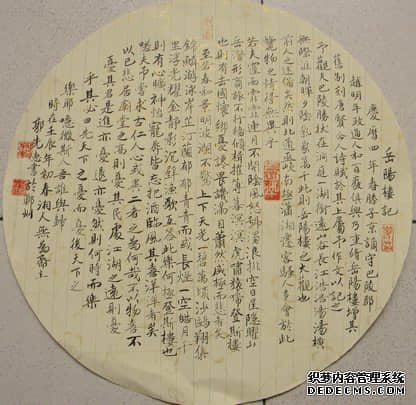 岳陽樓記
慶曆四年春滕子京謫守巴陵郡
越明年政通人和百廢俱興乃重修岳陽樓增其
舊制刻唐賢今人詩賦於其上屬予作文以記之
予觀夫巴陵勝狀在洞庭一湖銜遠山吞長江浩浩湯湯橫
無際涯朝暉夕陰氣象萬千此則岳陽樓之大觀也
前人之述備矣然則北通巫峽南極瀟湘遷客騷人多會於此
覽物之情得無異乎
若夫霪雨霏霏連月不開陰風怒號濁浪排空日星隱曜山
岳潛形商旅不行檣傾楫摧薄暮冥冥虎嘯猿啼登斯樓
也則有去國懷鄉憂讒畏譏滿目蕭然感極而悲者矣
至若春和景明波瀾不驚上下天光一碧萬頃沙鷗翔集
錦鱗游泳岸芷汀蘭郁郁青青而或長煙一空皓月千
里浮光耀金靜影沉璧漁歌互答此樂何極登斯樓也
則有心曠神怡寵辱皆忘把酒臨風其喜洋洋者矣
嗟夫予嘗求古仁人之心或異二者之為何哉不以物喜不
以己悲居廟堂之高則憂其民處江湖之遠則憂
其君是進亦憂退亦憂然則何時而樂
乎其必曰先天下之憂而憂後天下之
樂耶噫微斯人吾誰與歸
時在壬辰年初春湘人
郭先書於郴州
织梦内容管理系统
DEDECMS.COM